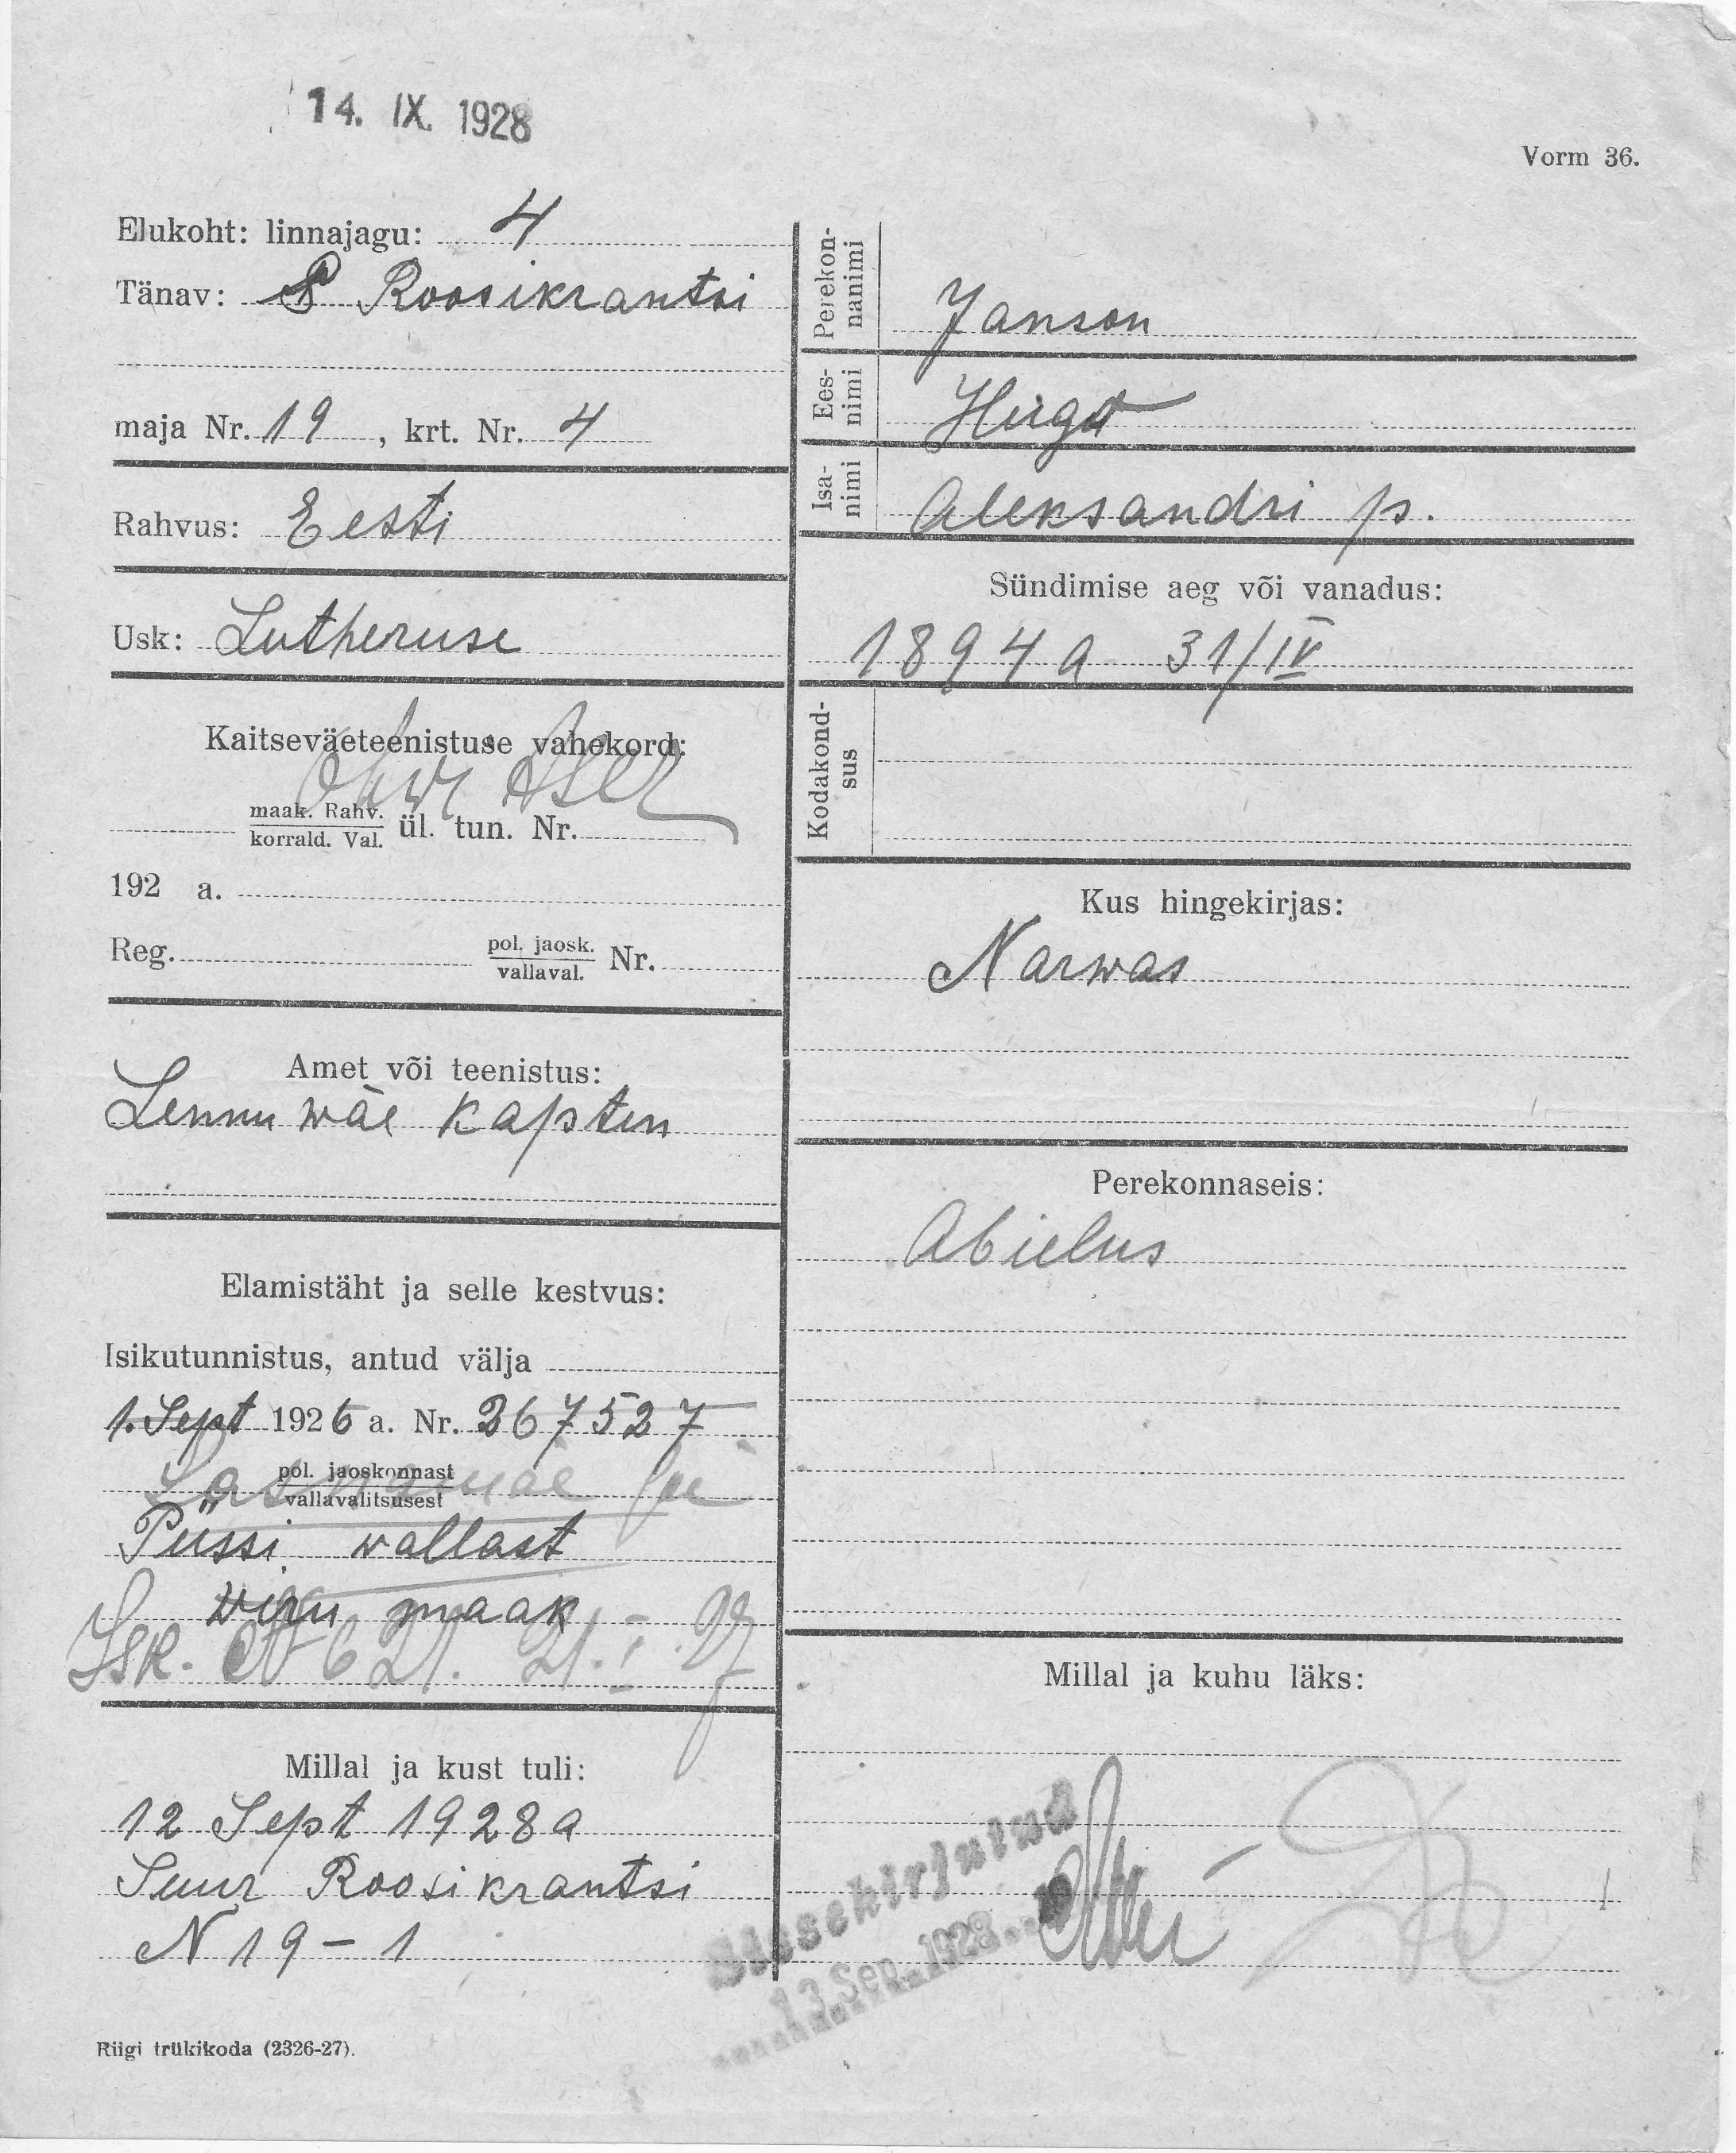 14. IX. 1928
Vorm 36.
Elukoht: linnajagu: 4
Tänav: S Roosikrantsi
maja Nr. 19, krt. Nr. 4
Rahvus: Eesti
Usk: Lutheruse
Kaitseväeteenistuse vahekord:
maak. Rahv.
korrald. Val. ül. tun. Nr.
192 a.
Reg. pol. jaosk.
vallaval. Nr.
Amet või teenistus:
Lennu wäe kapten
Elamistäht ja selle kestvus:
Isikutunnistus, antud välja
1. Sept 1926 a. Nr. 367527
pol. jaoskonnast
vallavalitsusest
Püssi wallast
wiru maak
Isk. N 621. 21.
Millal ja kust tuli:
12 Sept 1928 a
Suur Roosikrantsi
N 19 - 1
Riigi trükikoda (2326-27).
Perekon-
nanimi
Janson
Ees-
nimi
Hugo
Isa-
nimi
Aleksandri p.
Sündimise aeg või vanadus:
1894 a 31/IV
Kodakond-
sus
Kus hingekirjas:
Narwas
Perekonnaseis:
Abielus
Millal ja kuhu läks:
Sissekirjutud
13 Sep. 1928